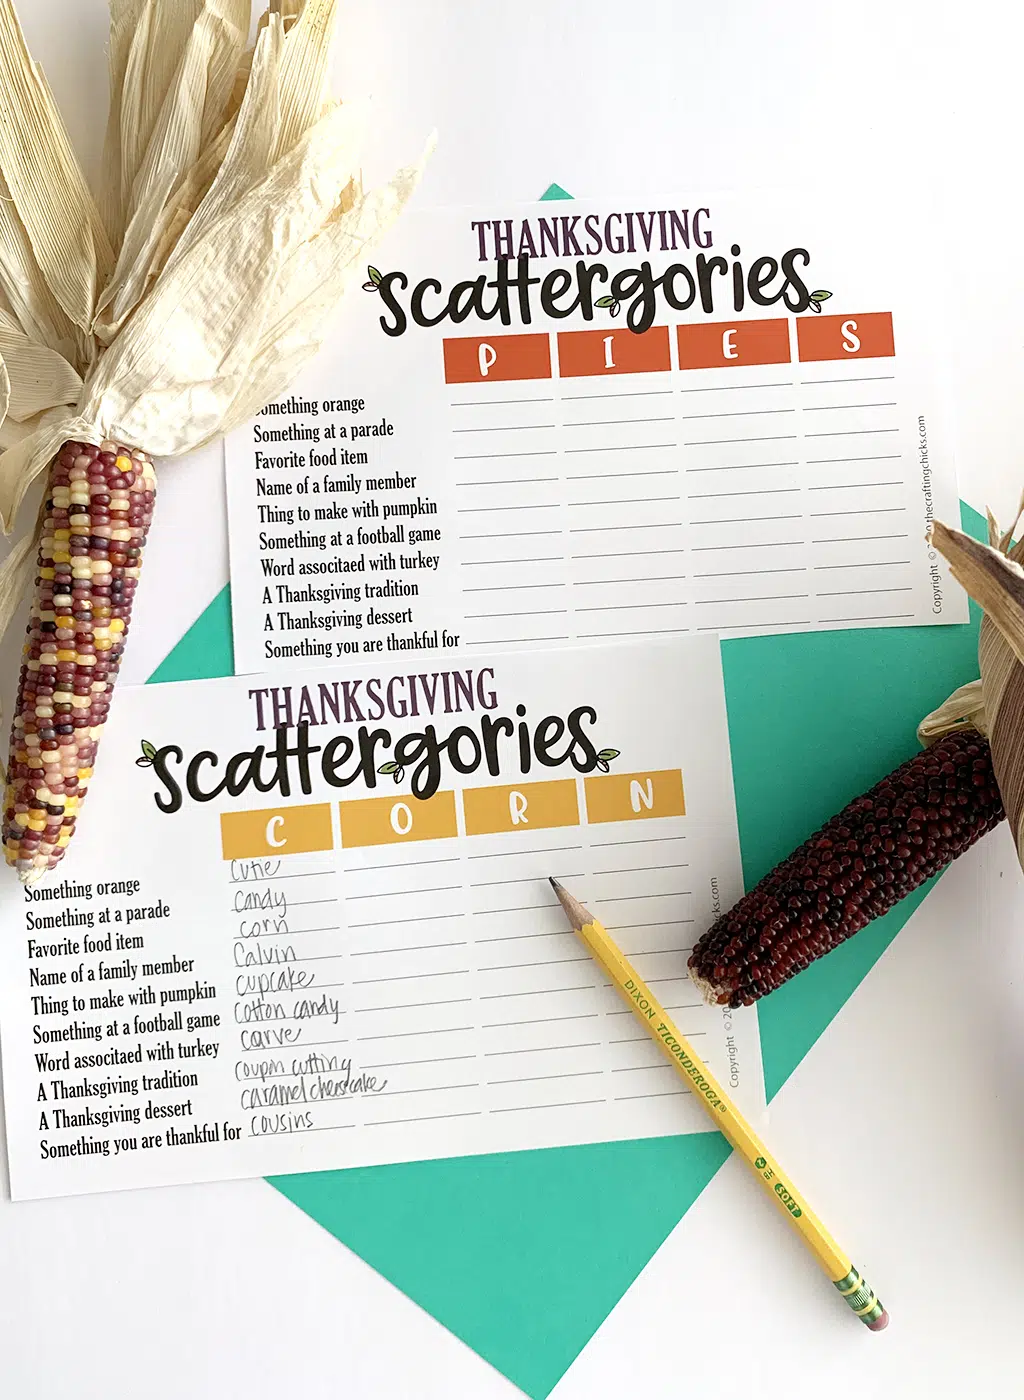 THANKSGIVING
scattergories
P I E S
Something orange
Something at a parade
Favorite food item
Name of a family member
Thing to make with pumpkin
Something at a football game
Word associtaed with turkey
A Thanksgiving tradition
A Thanksgiving dessert
Something you are thankful for
Copyright © thecraftingchicks.com
THANKSGIVING
scattergories
C O R N
Something orange Cutie
Something at a parade Candy
Favorite food item corn
Name of a family member Calvin
Thing to make with pumpkin cupcake
Something at a football game cotton candy
Word associtaed with turkey carve
A Thanksgiving tradition coupon cutting
A Thanksgiving dessert caramel cheesecake
Something you are thankful for cousins
Copyright © 20 cks.com
DIXON TICONDEROGA®
2 HB SOFT